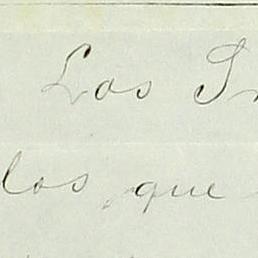 Los
los, que